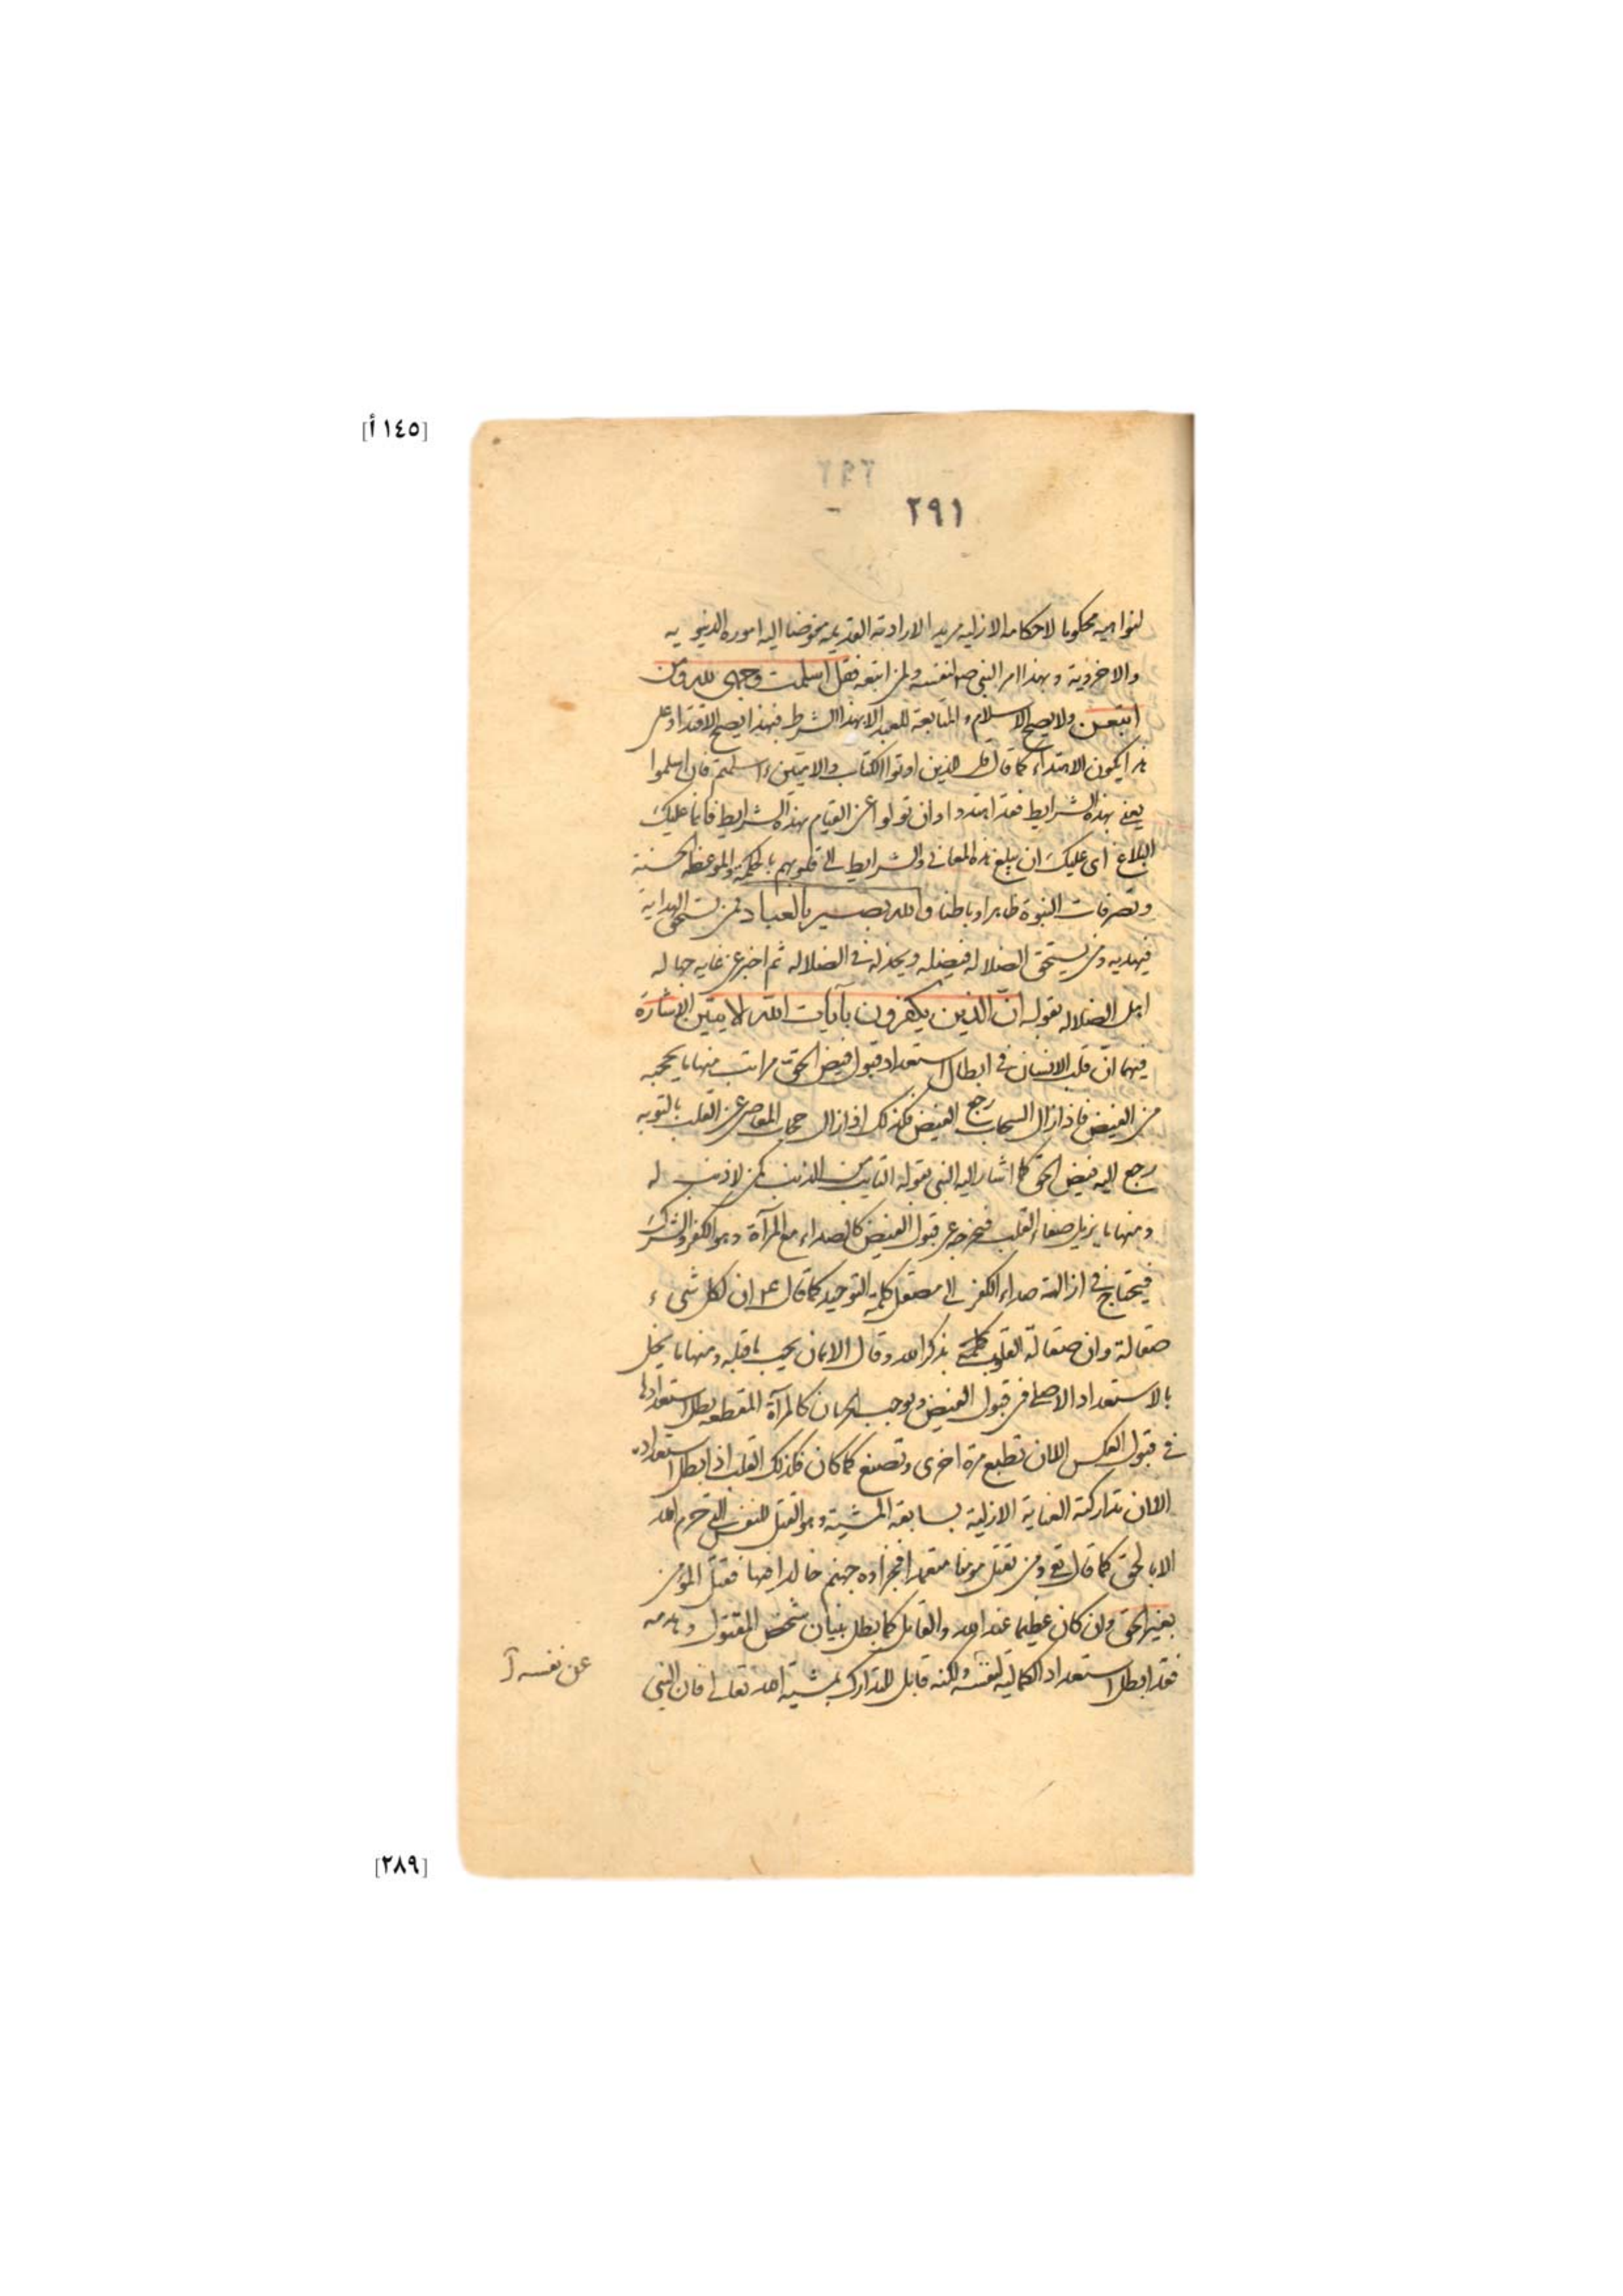 [١٤٥ أ]
٢٩١
لنواهيه محكوما لاحكامه الازلية مريدا لارادته القديمة مفوضا اليه اموره الدنيوية
والاخروية وبهذا امر النبي صم لنفسه ولمن اتبعه فقل اسلمت وجهى لله ومن
اتبعن ولا يصح الاسلام والمتابعة للعبد الا بهذا الشرط فبهذا يصح الاقتداء وعلى
هذا يكون الاهتداء كما قال قل للذين اوتوا الكتاب والاميين ءاسلمتم فان اسلموا
يعنى بهذه الشرايط فقد اهتدوا وان تولوا عن القيام بهذه الشرايط فانما عليك
البلاغ اى عليك ان تبلغ هذه المعانى والشرايط الى قلوبهم بالحكمة والموعظة الحسنة
وتصرفات النبوة ظاهرا وباطنا والله بصير بالعباد لمن يستحق الهداية
فيهديه ومن يستحق الضلالة فيضله ويخذله فى الضلالة ثم اخبر عن غاية جهالة
اهل الضلالة بقوله ان الذين يكفرون بآيات الله الآيتين الاشارة
فيهما ان قلب الانسان فى ابطال استعداد قبول فيض الحق مراتب منها ما يحجبه
من الفيض فاذا زال السحاب رجع الفيض فكذلك اذا زال حجاب المعاصى عن القلب بالتوبة
رجع اليه فيض الحق كما اشار اليه النبى بقوله التايب من الذنب كمن لا ذنب له
ومنها ما يزيل صفاء القلب فيخرجه عن قبول الفيض كالصداء مع المرآة وهو الكفر والشرك
فيحتاج فى ازالة صداء الكفر الى مصقل كلمة التوحيد كما قال عم ان لكل شىء
صقالة وان صقالة القلوب بذكر الله وقال الايمان يجب ما قبله ومنها ما يخل
بالاستعداد الاصلى فى قبول الفيض ويوجب الحرمان كالمرآة المقطعة بطل استعدادها
فى قبول العكس الا ان تطبع مرة اخرى وتصنع كما كان فكذلك القلب اذا بطل استعداده
الا ان تداركته العناية الازلية بسابقة المشية وهو القتل للنفس التى حرم الله
الا بالحق كما قال تع ومن يقتل مومنا متعمدا فجزاؤه جهنم خالدا فيها فقتل المؤمن
بغير الحق وان كان عظيما عند الله والقاتل كما بطل بنيان شخص المقتول وهدمه
فقد ابطل استعداد الكمالية لنفسه ولكنه قابل للتدارك بمشية الله تعالى فان النبى
عن نفسه
[٢٨٩]